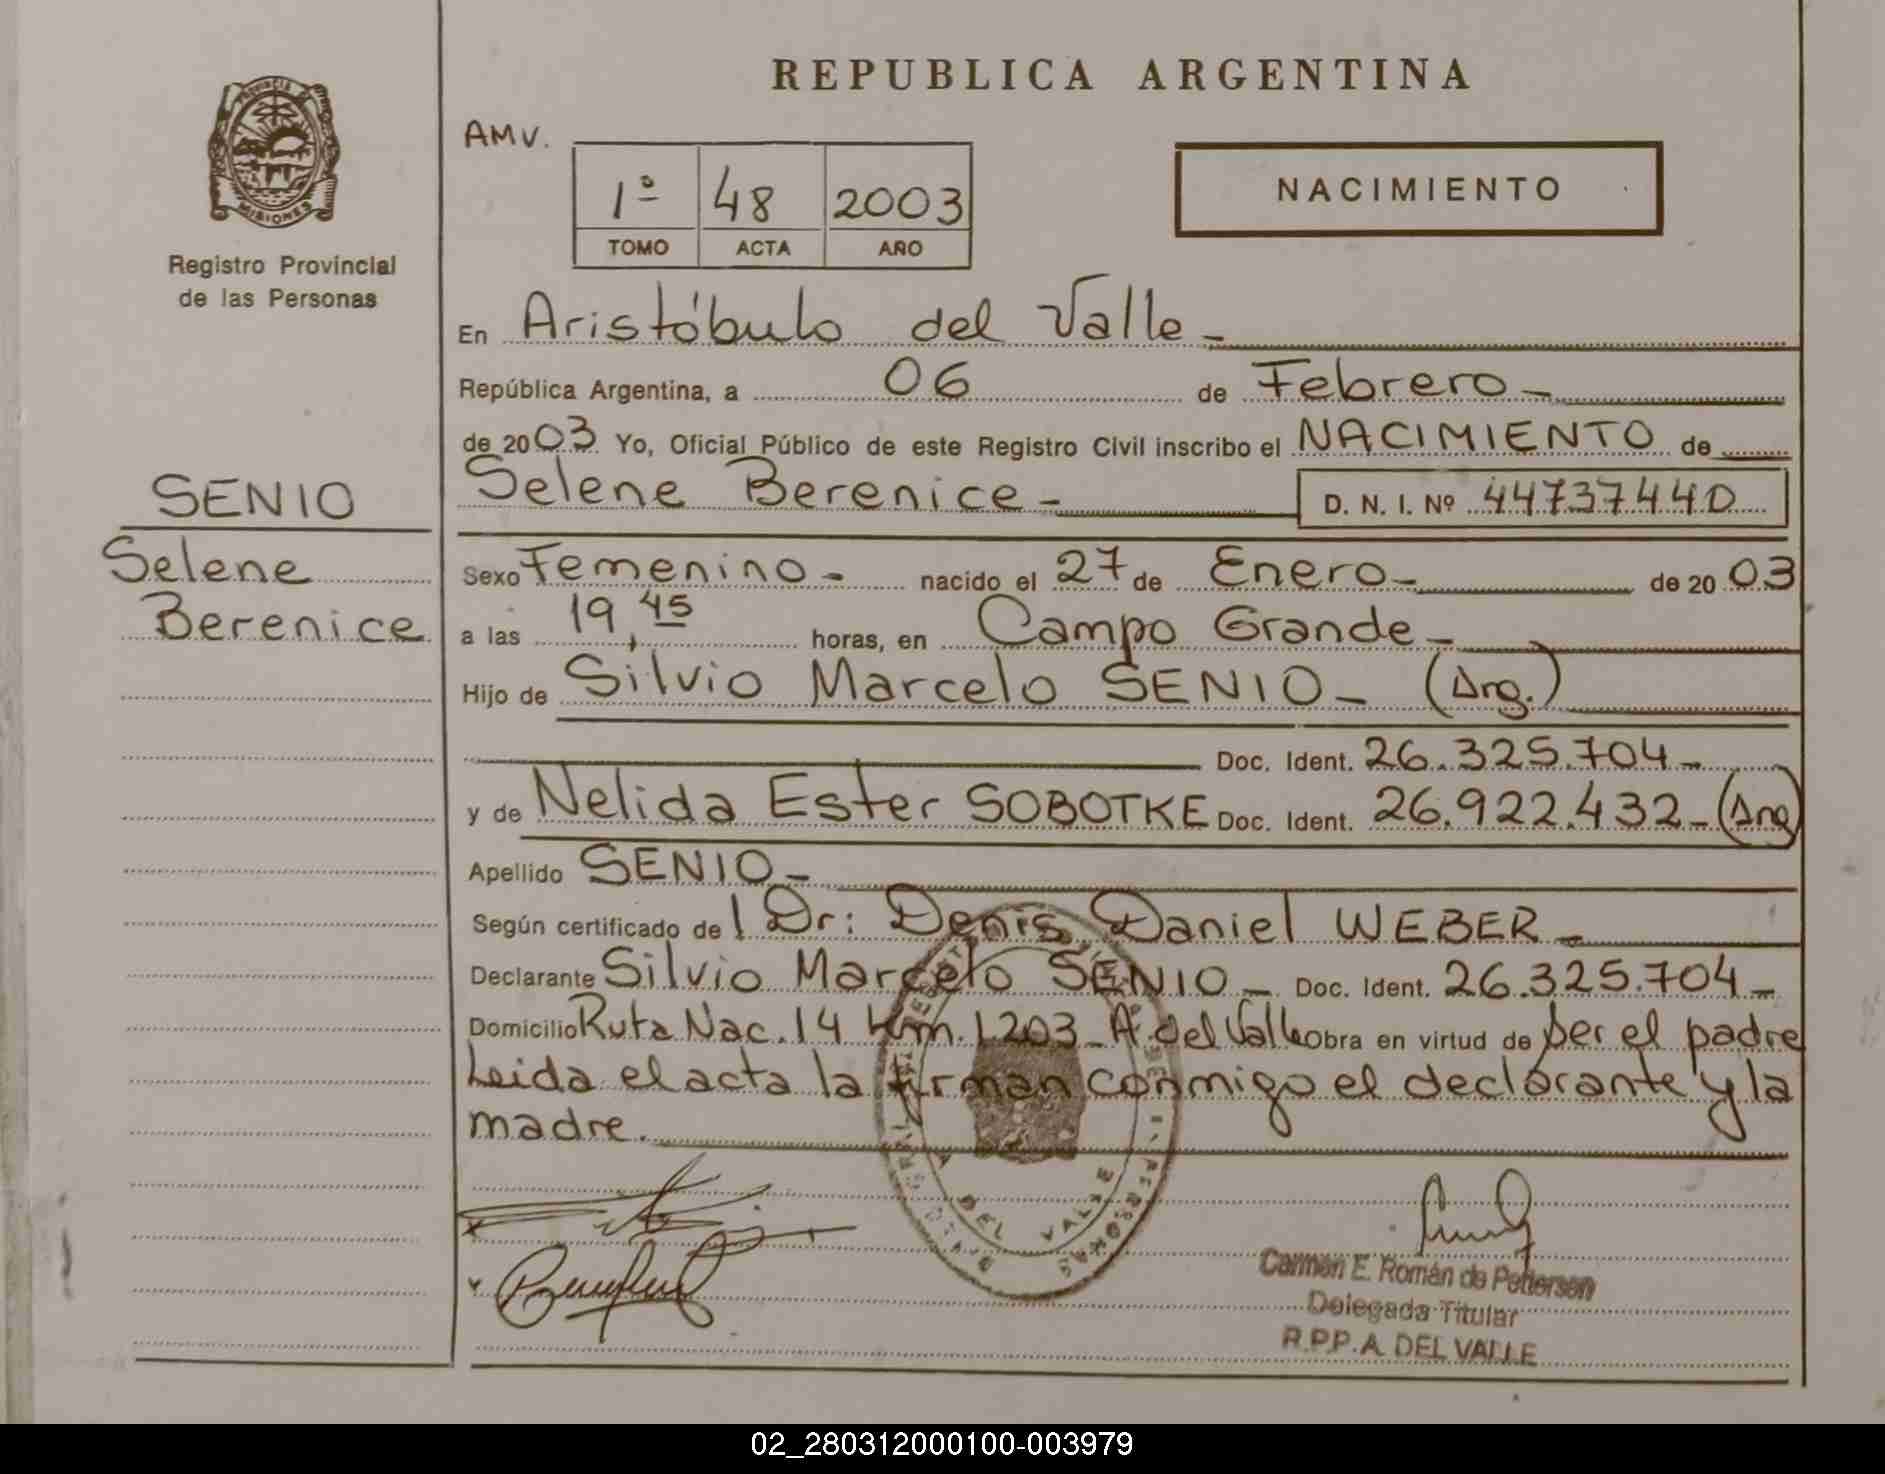 REPUBLICA ARGENTINA
PROVINCIA DE
MISIONES
Registro Provincial
de las Personas
AMV.
1º 48 2003
TOMO ACTA AÑO
NACIMIENTO
En Aristóbulo del Valle -
República Argentina, a 06 de Febrero -
de 2003 Yo, Oficial Público de este Registro Civil inscribo el NACIMIENTO de
Selene Berenice - D. N. I. Nº 44737440
SENIO
Selene
Berenice
Sexo Femenino - nacido el 27 de Enero - de 2003
a las 19,45 horas, en Campo Grande -
Hijo de Silvio Marcelo SENIO - (Arg.)
Doc. Ident. 26.325.704 -
y de Nelida Ester SOBOTKE Doc. Ident. 26.922.432 - (Arg)
Apellido SENIO -
Según certificado de l Dr: Denis Daniel WEBER -
Declarante Silvio Marcelo SENIO - Doc. Ident. 26.325.704 -
Domicilio Ruta Nac. 14 Km. 1203 - A. del Valle obra en virtud de ser el padre
Leida el acta la firman conmigo el declarante y la
madre.
DEL VALLE
PERSONAS
Carmen E. Román de Pettersen
Delegada Titular
R.P.P. A. DEL VALLE
02_280312000100-003979